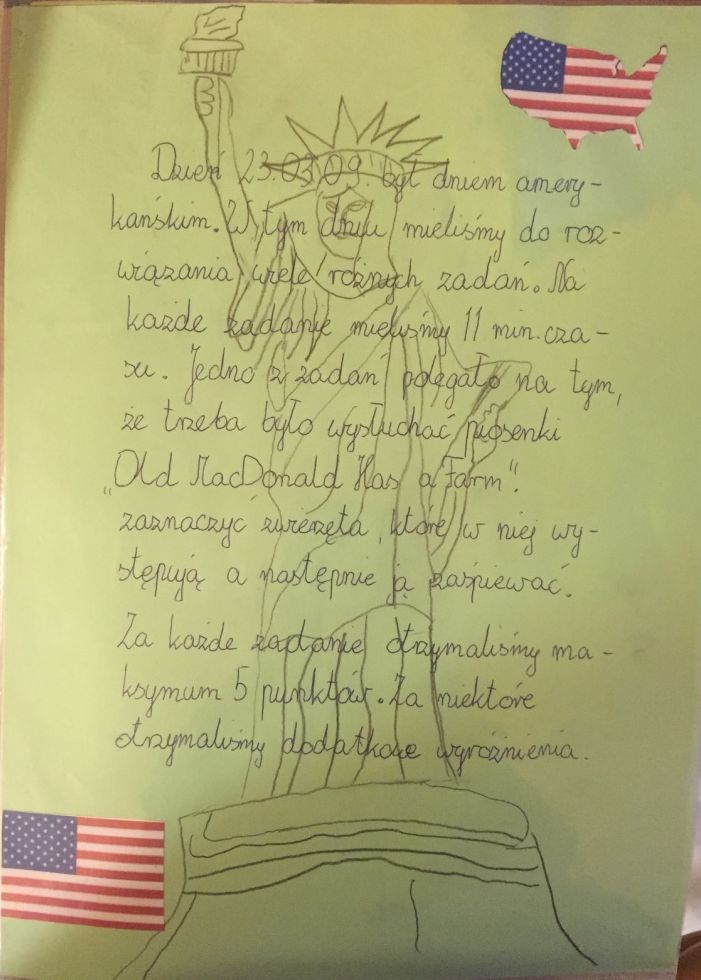 Dzień 23.03.09. był dniem amery-
kańskim. W tym dniu mieliśmy do roz-
wiązania wiele różnych zadań. Na
każde zadanie mieliśmy 11 min. cza-
su. Jedno z zadań polegało na tym,
że trzeba było wysłuchać piosenki
„Old MacDonald Has a Farm".
zaznaczyć zwierzęta, które w niej wy-
stępują a następnie ją zaśpiewać.
Za każde zadanie otrzymaliśmy ma-
ksymum 5 punktów. Za niektóre
otrzymaliśmy dodatkowe wyróżnienia.